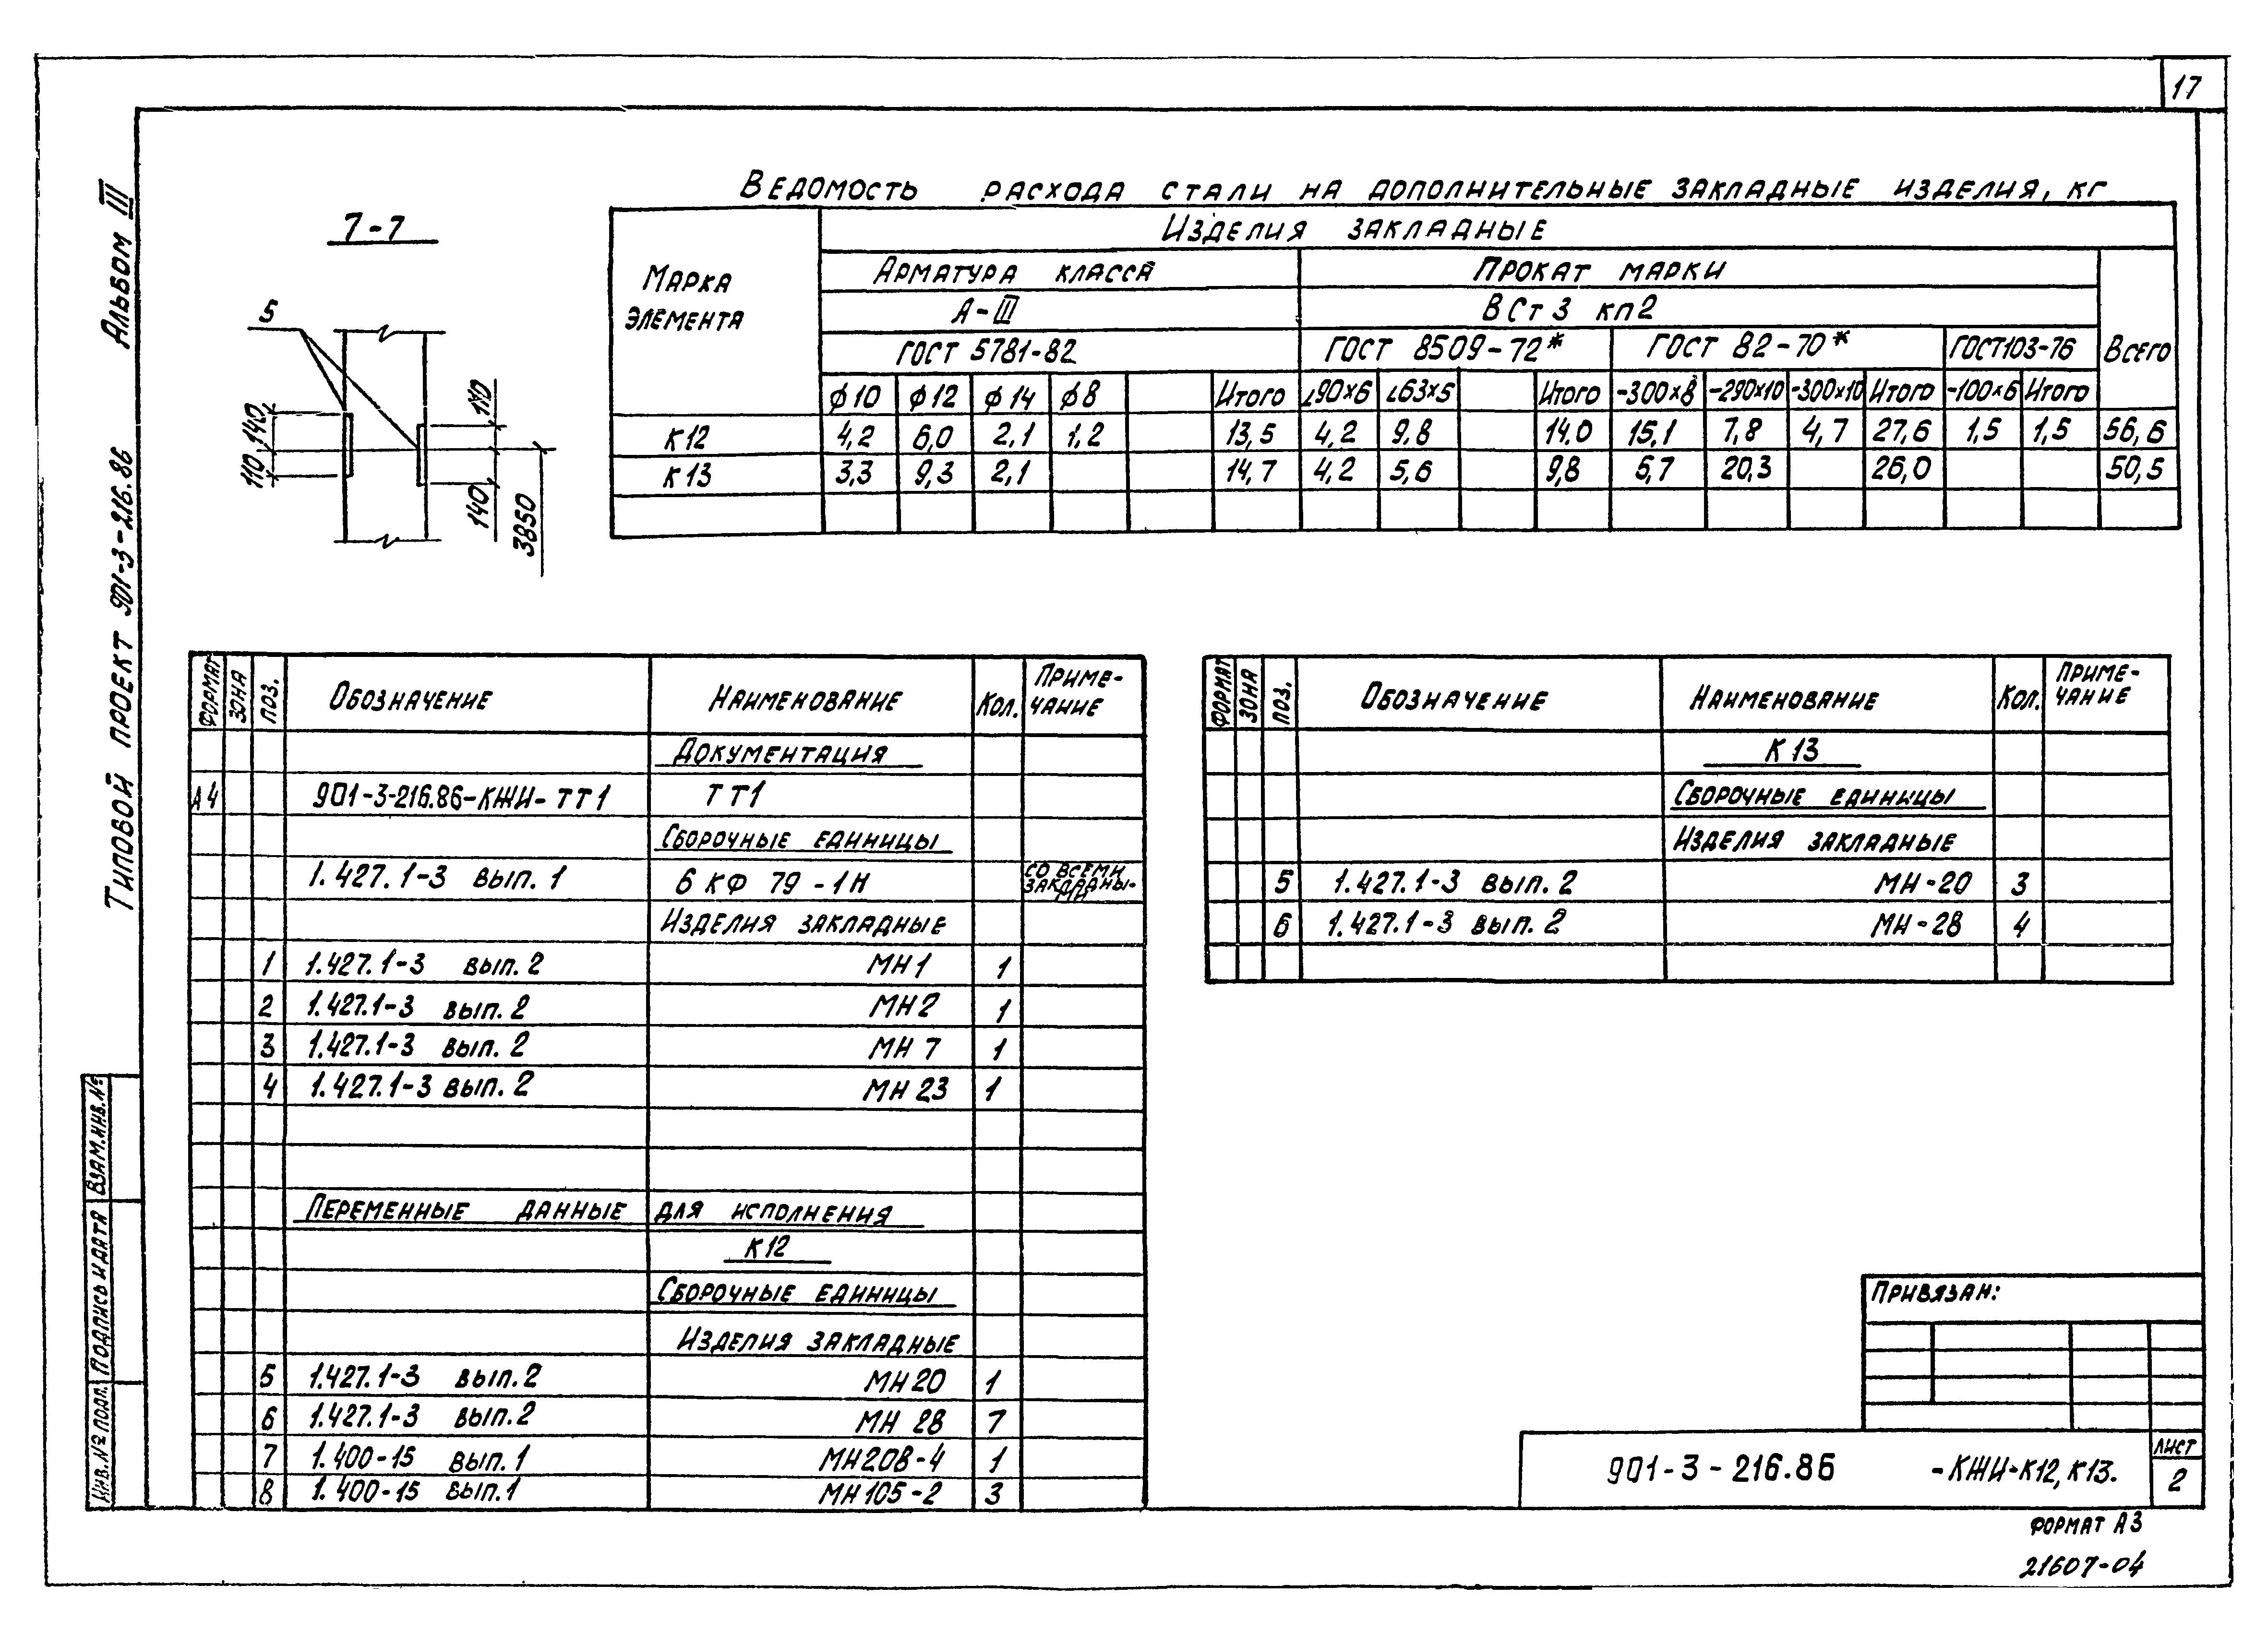 17
Альбом III
Типовой проект 901-3-216.86
7-7
5
140
110
110
140
3850
Ведомость расхода стали на дополнительные закладные изделия, кг
Марка элемента
Изделия закладные
Арматура класса
Прокат марки
Всего
А-III
ВСт3 кп2
ГОСТ 5781-82
ГОСТ 8509-72*
ГОСТ 82-70*
ГОСТ103-76
ф10 ф12 ф14 ф8 Итого ∠90х6 ∠63х5 Итого -300х8 -290х10 -300х10 Итого -100х6 Итого
К12 4,2 6,0 2,1 1,2 13,5 4,2 9,8 14.0 15,1 7,8 4,7 27,6 1,5 1,5 56,6
К13 3,3 9,3 2,1 14,7 4,2 5,6 9,8 5,7 20,3 26,0 50,5
Формат Зона Поз. Обозначение Наименование Кол. Примечание
Документация
А4 901-3-216.86-КЖИ-ТТ1 ТТ1
Сборочные единицы
1.427.1-3 вып.1 6 КФ 79-1Н со всеми закладными
Изделия закладные
1 1.427.1-3 вып.2 МН1 1
2 1.427.1-3 вып.2 МН2 1
3 1.427.1-3 вып.2 МН 7 1
4 1.427.1-3 вып.2 МН 23 1
Переменные данные для исполнения
К12
Сборочные единицы
Изделия закладные
5 1.427.1-3 вып.2 МН20 1
6 1.427.1-3 вып.2 МН 28 7
7 1.400-15 вып.1 МН208-4 1
8 1.400-15 вып.1 МН105-2 3
Формат Зона Поз. Обозначение Наименование Кол. Примечание
К13
Сборочные единицы
Изделия закладные
5 1.427.1-3 вып.2 МН-20 3
6 1.427.1-3 вып.2 МН-28 4
Взам.инв.№
Подпись и дата
Инв.№ подл.
Привязан:
901-3-216.86 -КЖИ-К12, К13.
Лист
2
Формат А3
21607-04